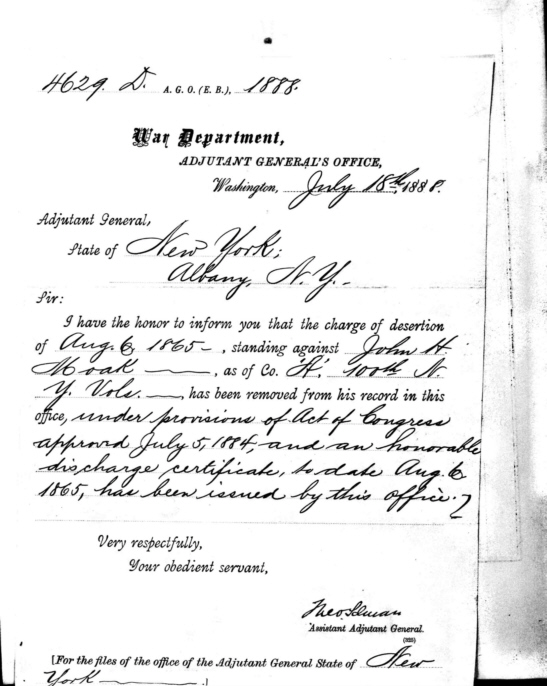 4629. D. A.G.O. (E.B.), 1888.
War Department,
ADJUTANT GENERAL'S OFFICE,
Washington, July 18th, 1888.
Adjutant General,
State of New York;
Albany, N. Y.
Sir:
I have the honor to inform you that the charge of desertion
of Aug. 6, 1865 –, standing against John H.
Moak ——, as of Co. "A", 100th N.
Y. Vols. ——, has been removed from his record in this
office, under provisions of Act of Congress
approved July 5, 1884, and an honorable
discharge certificate, to date Aug. 6,
1865, has been issued by this office.
Very respectfully,
Your obedient servant,
Assistant Adjutant General.
(325)
[For the files of the office of the Adjutant General State of New
York ——.]